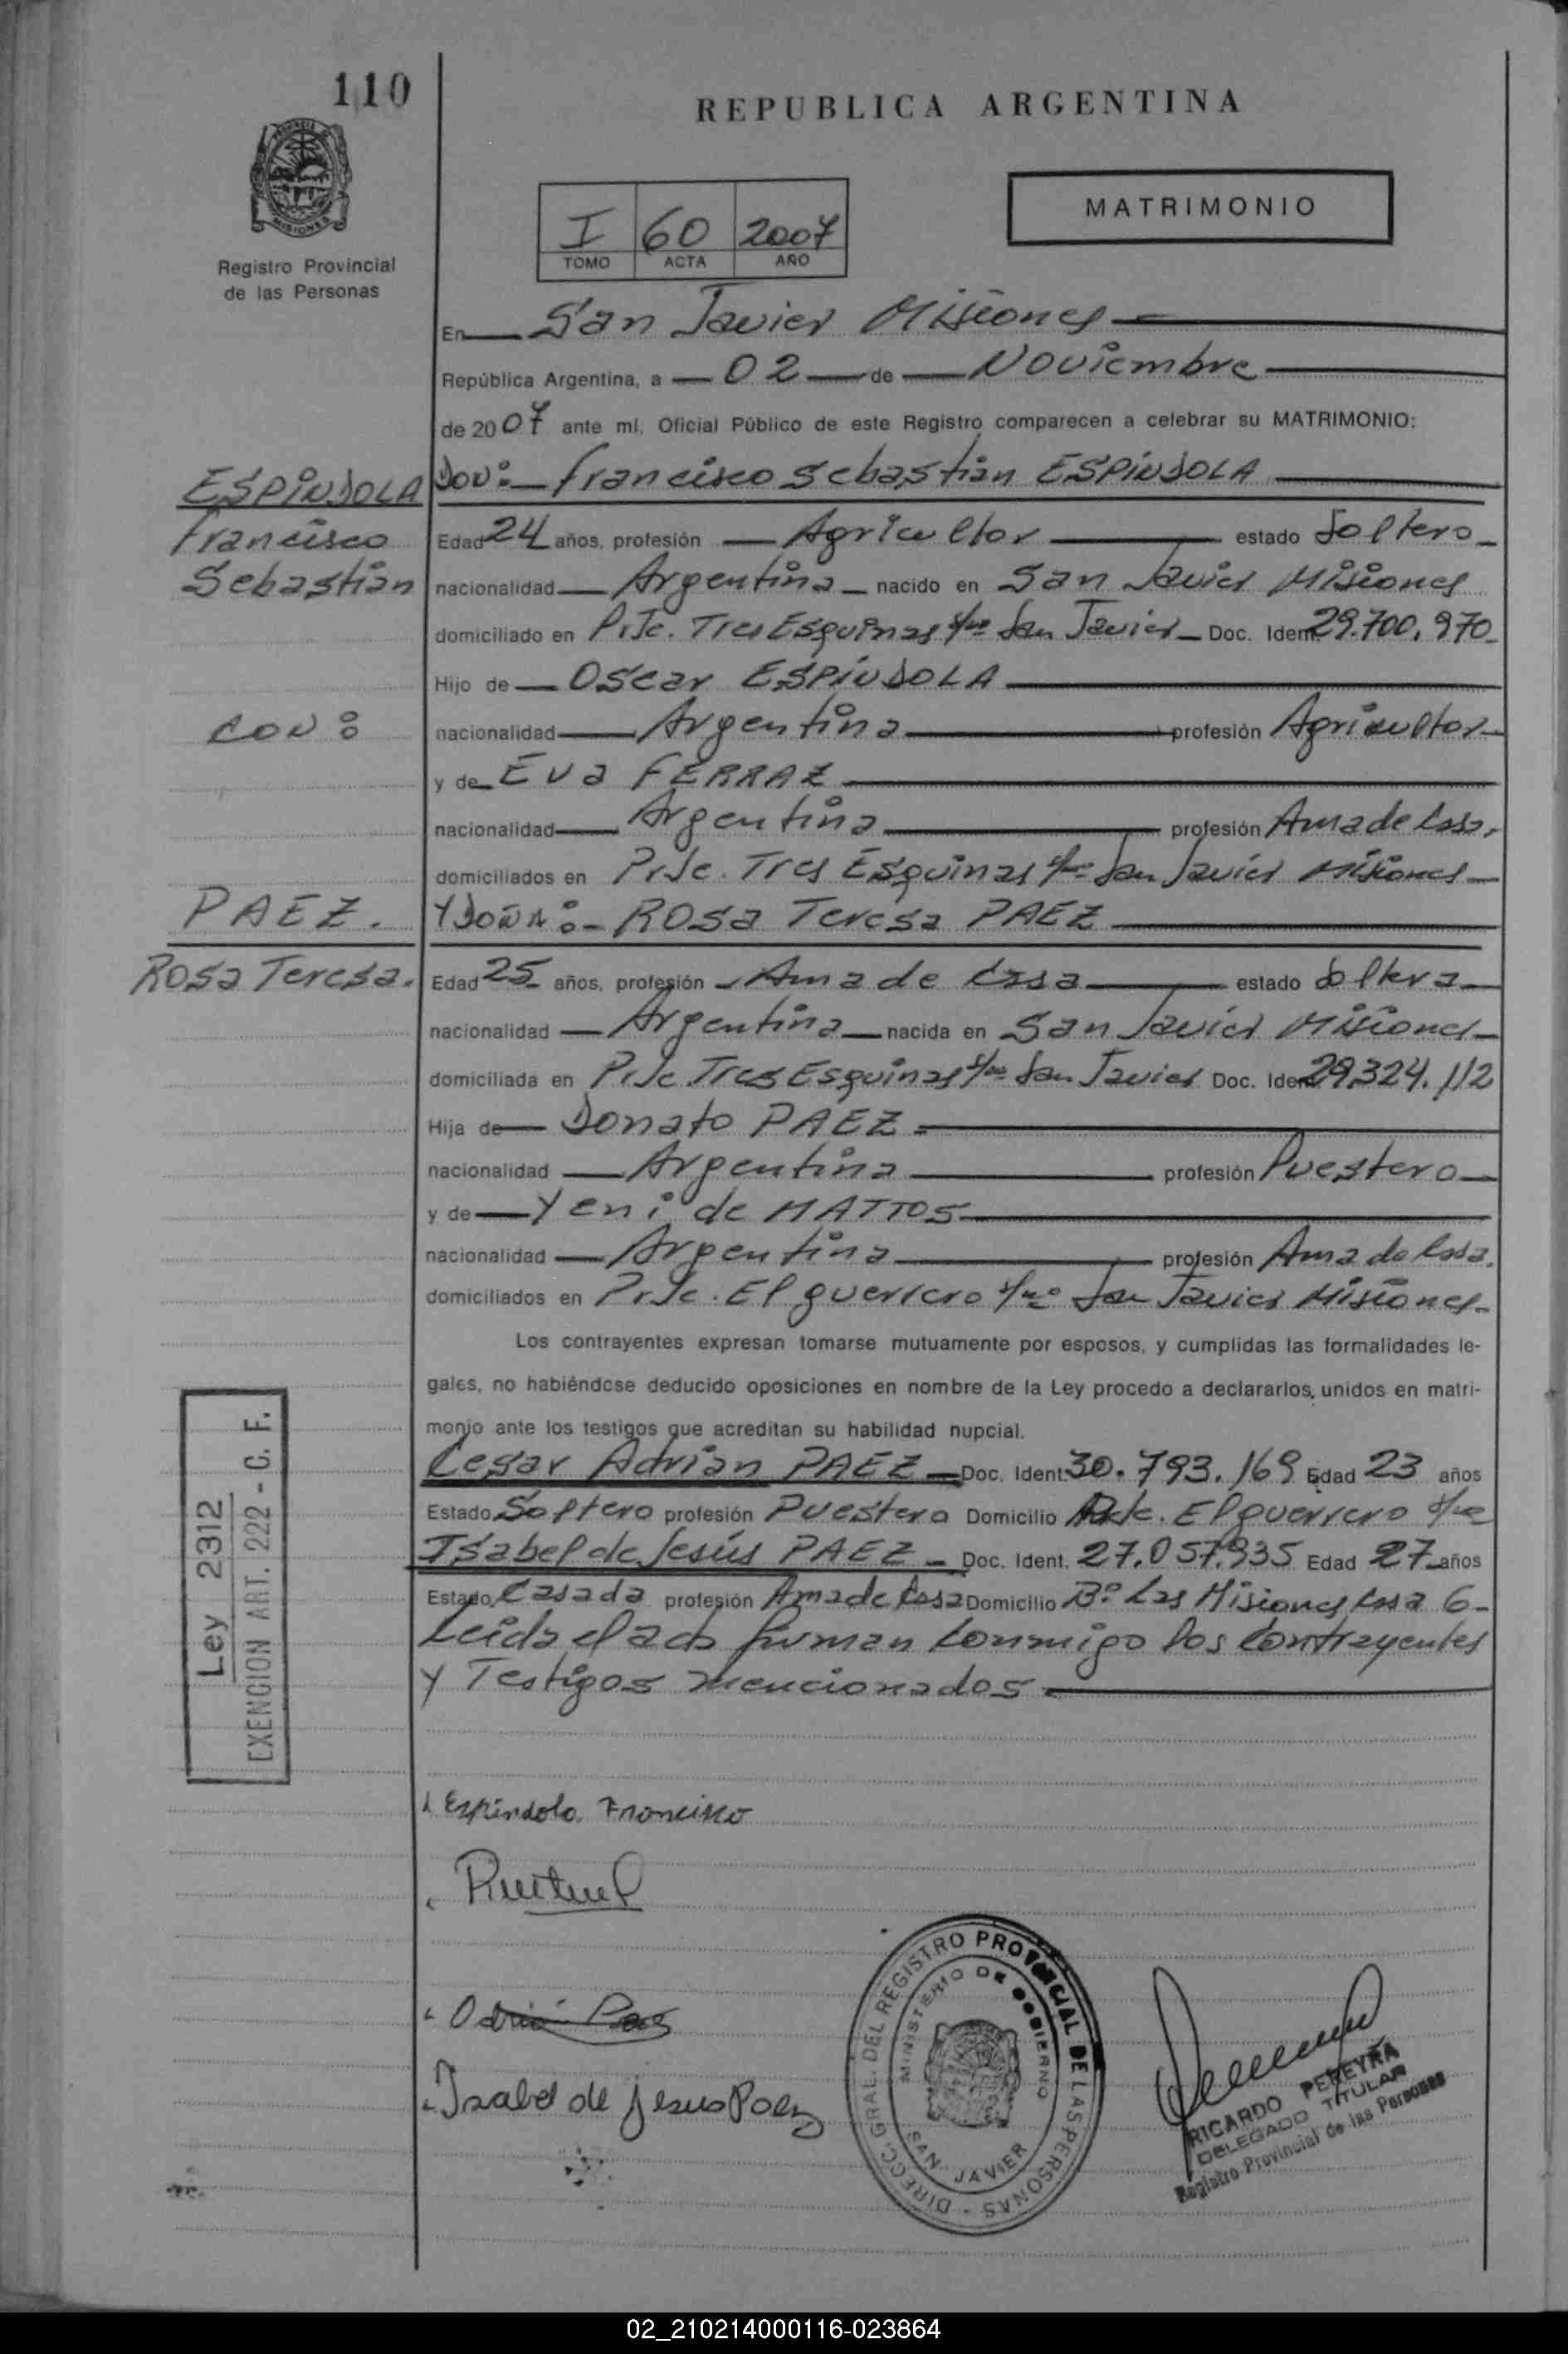 110
REPUBLICA ARGENTINA
MISIONES
Registro Provincial
de las Personas
I 60 2007
TOMO ACTA AÑO
MATRIMONIO
En San Javier Misiones
República Argentina, a 02 de Noviembre
de 2007 ante mí, Oficial Público de este Registro comparecen a celebrar su MATRIMONIO:
ESPíNDOLA
Francisco
Sebastián
DON: Francisco Sebastián ESPíNDOLA
Edad 24 años, profesión Agricultor estado Soltero
nacionalidad Argentina nacido en San Javier Misiones
domiciliado en Pje. Tres Esquinas San Javier Doc. Ident. 29.700.970
Hijo de Oscar ESPíNDOLA
CON:
nacionalidad Argentina profesión Agricultor
y de Eva FERRAZ
nacionalidad Argentina profesión Ama de Casa.
domiciliados en Pje. Tres Esquinas San Javier Misiones
PAEZ.
Rosa Teresa.
Y DOÑA: Rosa Teresa PAEZ
Edad 25 años, profesión Ama de Casa estado Soltera
nacionalidad Argentina nacida en San Javier Misiones
domiciliada en Pje Tres Esquinas San Javier Doc. Ident. 29.324.112
Hija de Donato PAEZ
nacionalidad Argentina profesión Puestero
y de Yeni de MATTOS
nacionalidad Argentina profesión Ama de Casa.
domiciliados en Pje. El guerrero San Javier Misiones
Los contrayentes expresan tomarse mutuamente por esposos, y cumplidas las formalidades le-
gales, no habiéndose deducido oposiciones en nombre de la Ley procedo a declararlos, unidos en matri-
monio ante los testigos que acreditan su habilidad nupcial.
Cesar Adrián PAEZ Doc. Ident. 30.793.169 Edad 23 años
Estado Soltero profesión Puestero Domicilio El guerrero
Isabel de Jesús PAEZ Doc. Ident. 27.057.935 Edad 27 años
Estado Casada profesión Ama de Casa Domicilio B° Las Misiones Casa 6
Leída el acto firman conmigo los contrayentes
y Testigos mencionados
Ley 2312
EXENCION ART. 222 - C. F.
Espíndola Francisco
Isabel de Jesus Paez
DIRECC. GRAL. DEL REGISTRO PROVINCIAL DE LAS PERSONAS
MINISTERIO DE GOBIERNO
SAN JAVIER
RICARDO PEREYRA
DELEGADO TITULAR
Registro Provincial de las Personas
02_210214000116-023864